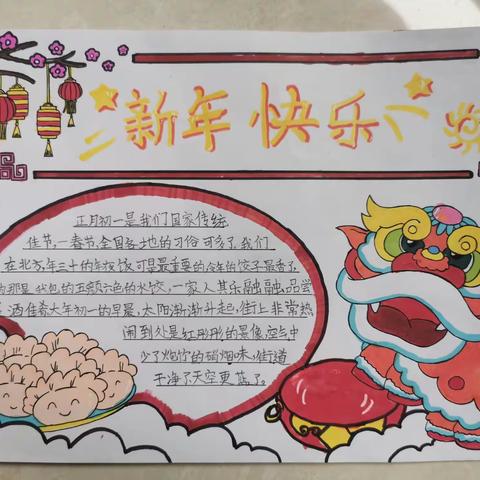 新年快乐
正月初一是我们国家传统
佳节,一春节,全国各地的习俗可多了,我们
在北方,年三十的年夜饭可是最重要的,今年的饺子最香了,
的那是我包的五颜六色的水饺,一家人其乐融融,品尝
洒佳肴大年初一的早晨,太阳渐渐升起,街上非常热
闹到处是红彤彤的景像,空气中
少了炮竹的硝烟味,街道
干净了天空更蓝了。